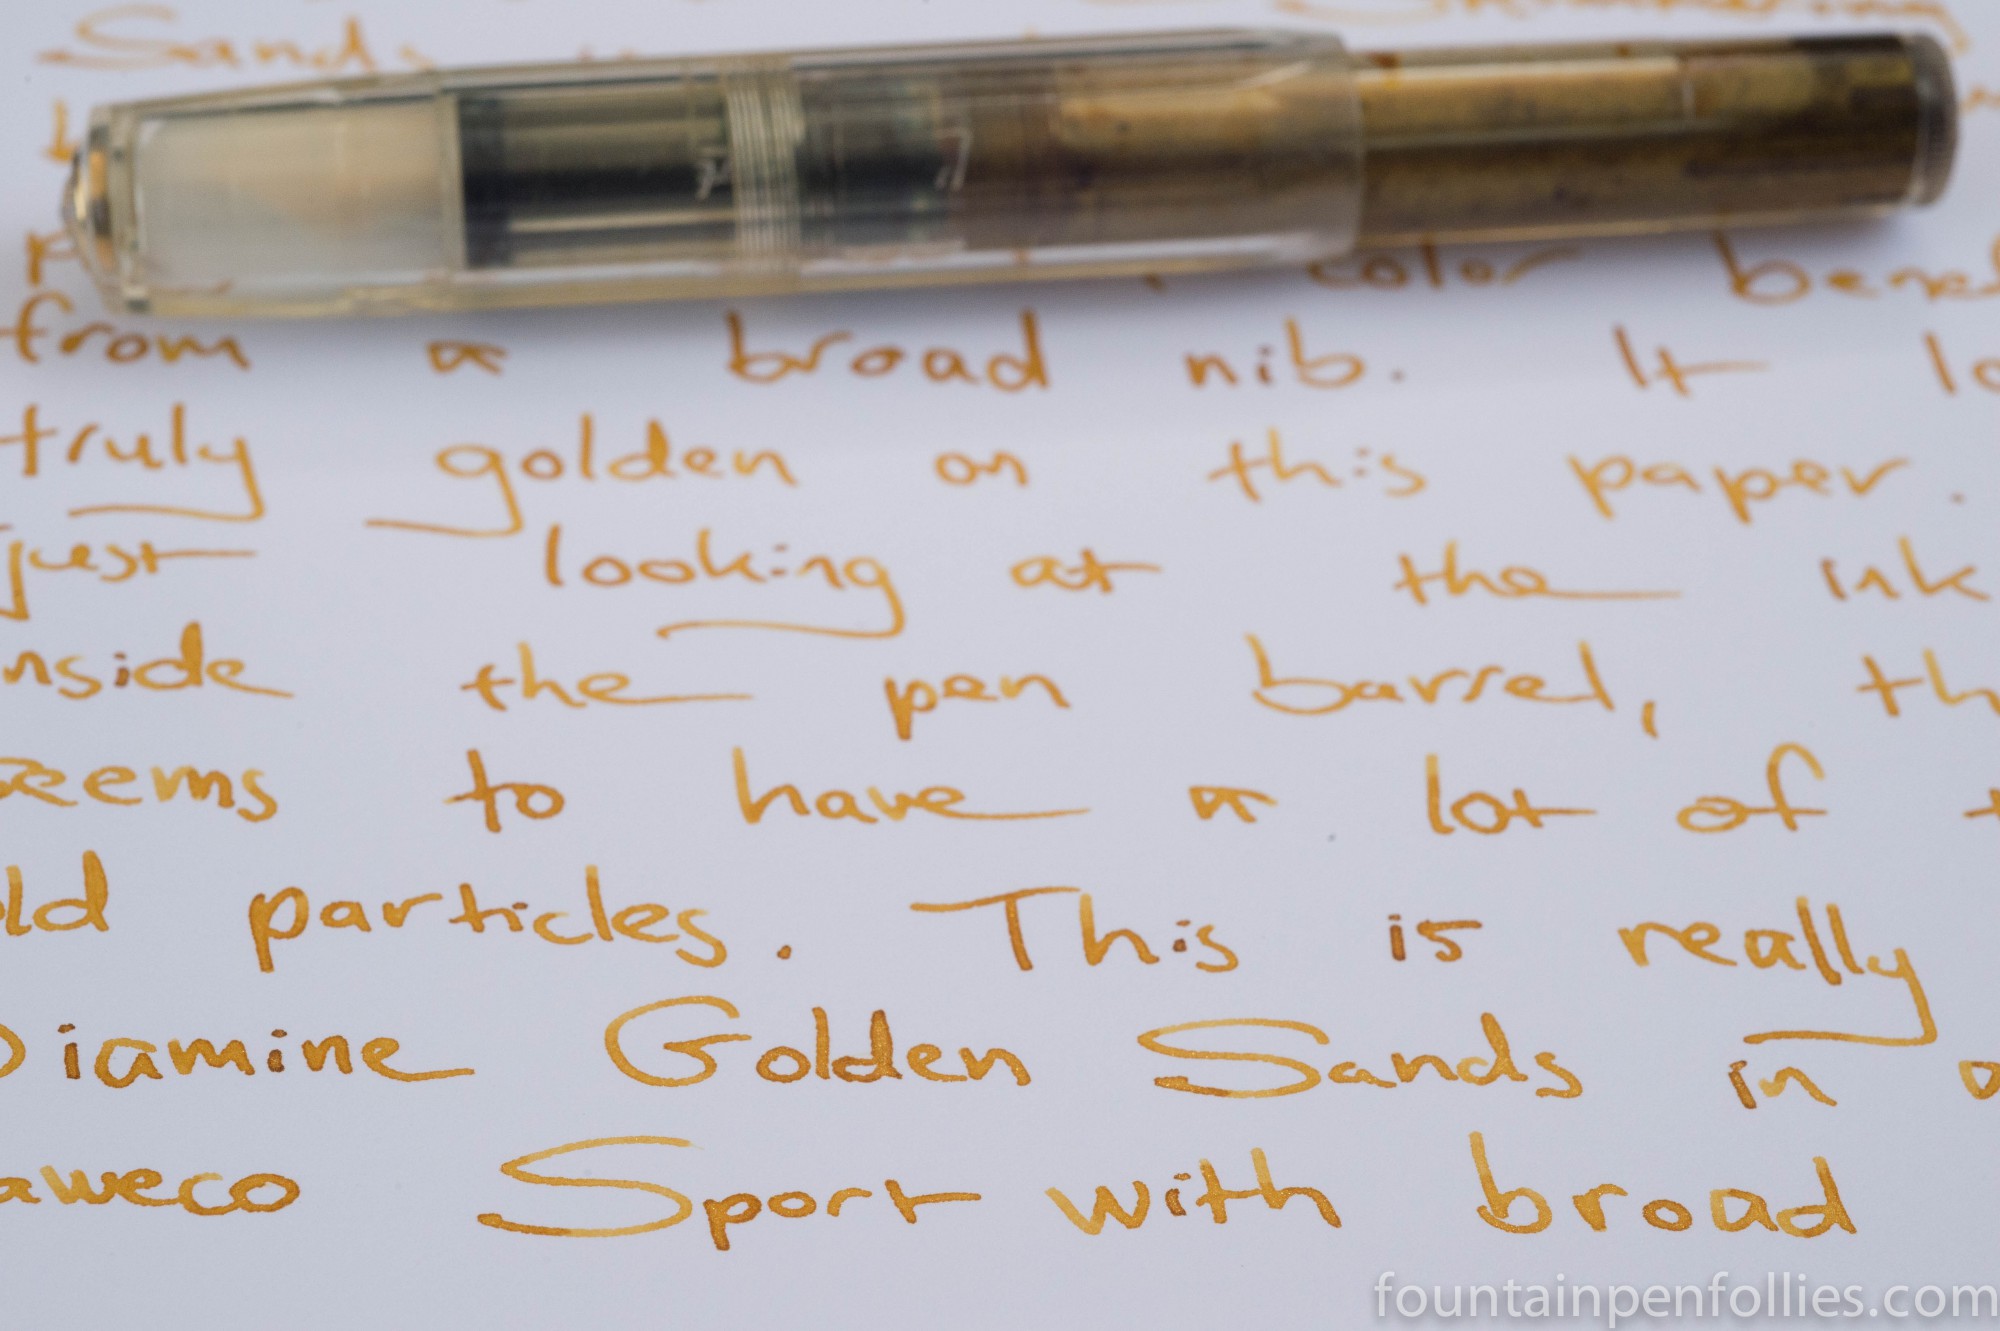 Sands
color
from a broad nib. It lo
truly golden on this paper.
just looking at the ink
nside the pen barrel, th
seems to have a lot of t
old particles. This is really
Diamine Golden Sands in a
aweco Sport with broad
fountainpenfollies.com